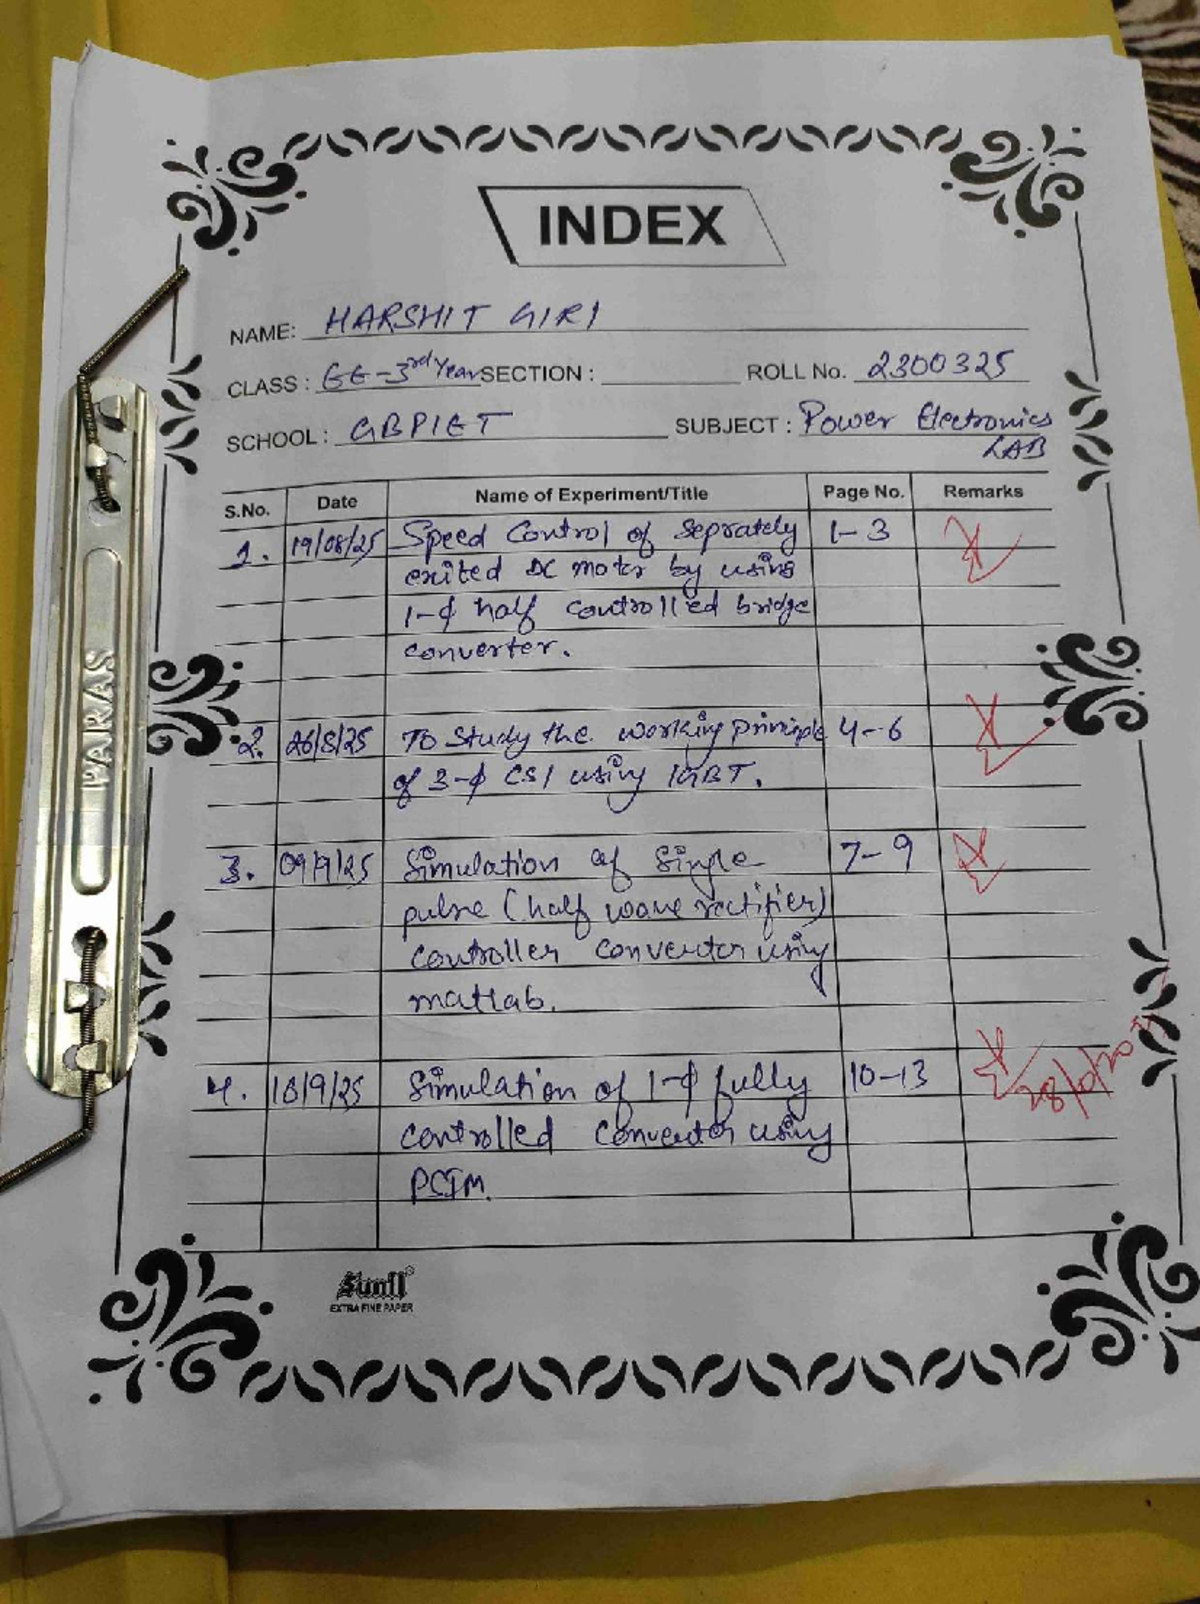 INDEX
NAME: HARSHIT GIRI
CLASS : EE-3rd Year SECTION : ROLL No. 2300325
SCHOOL : GBPIET SUBJECT : Power Electronics
LAB
S.No. Date Name of Experiment/Title Page No. Remarks
1. 19/08/25 Speed Control of Seprately 1-3
exited DC motor by using
1-ϕ half controlled bridge
converter.
2. 26/8/25 To Study the working principle 4-6
of 3-ϕ CSI using IGBT.
3. 09/9/25 Simulation of Single 7-9
pulse (half wave rectifier)
controller converter using
matlab.
4. 18/9/25 Simulation of 1-ϕ fully 10-13
controlled converter using
PSIM.
PARAS
Sunfl
EXTRA FINE PAPER